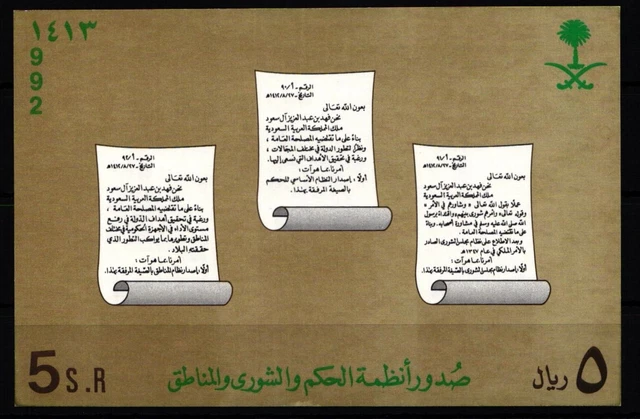 ١٤١٣
1992
الرقم - أ/٩٠
التاريخ - ١٤١٢/٨/٢٧هـ
بعون الله تعالى
نحن فهد بن عبد العزيز آل سعود
ملك المملكة العربية السعودية
بناءً على ما تقتضيه المصلحة العامة ،
ونظراً لتطور الدولة في مختلف المجالات ،
ورغبة في تحقيق الأهداف التي نسعى إليها.
أمرنا بما هو آت :
أولاً ، إصدار النظام الأساسي للحكم
بالصيغة المرفقة بهذا.
الرقم - أ/٩٢
التاريخ - ١٤١٢/٨/٢٧هـ
بعون الله تعالى
نحن فهد بن عبد العزيز آل سعود
ملك المملكة العربية السعودية
بناءً على ما تقتضيه المصلحة العامة ،
ورغبة في تحقيق أهداف الدولة في رفع
مستوى الأداء في الأجهزة الحكومية في مختلف
المناطق وتطويرها بما يواكب التطور الذي
حققته البلاد .
أمرنا بما هو آت :
أولاً ، إصدار نظام المناطق بالصيغة المرفقة بهذا.
التاريخ - ١٤١٢/٨/٢٧هـ
بعون الله تعالى
نحن فهد بن عبد العزيز آل سعود
ملك المملكة العربية السعودية
عملاً بقول الله تعالى ، وشاورهم في الأمر ،
وقوله تعالى ، وأمرهم شورى بينهم ، واقتداءً برسول
الله صلى الله عليه وسلم في مشاورة أصحابه . وبناءً
على ما تقتضيه المصلحة العامة .
وبعد الاطلاع على نظام مجلس الشورى الصادر
بالأمر الملكي في عام ١٣٤٧هـ
أمرنا بما هو آت :
أولاً ، إصدار نظام مجلس الشورى بالصيغة المرفقة بهذا.
5 S.R
صدور أنظمة الحكم والشورى والمناطق
٥ ريال